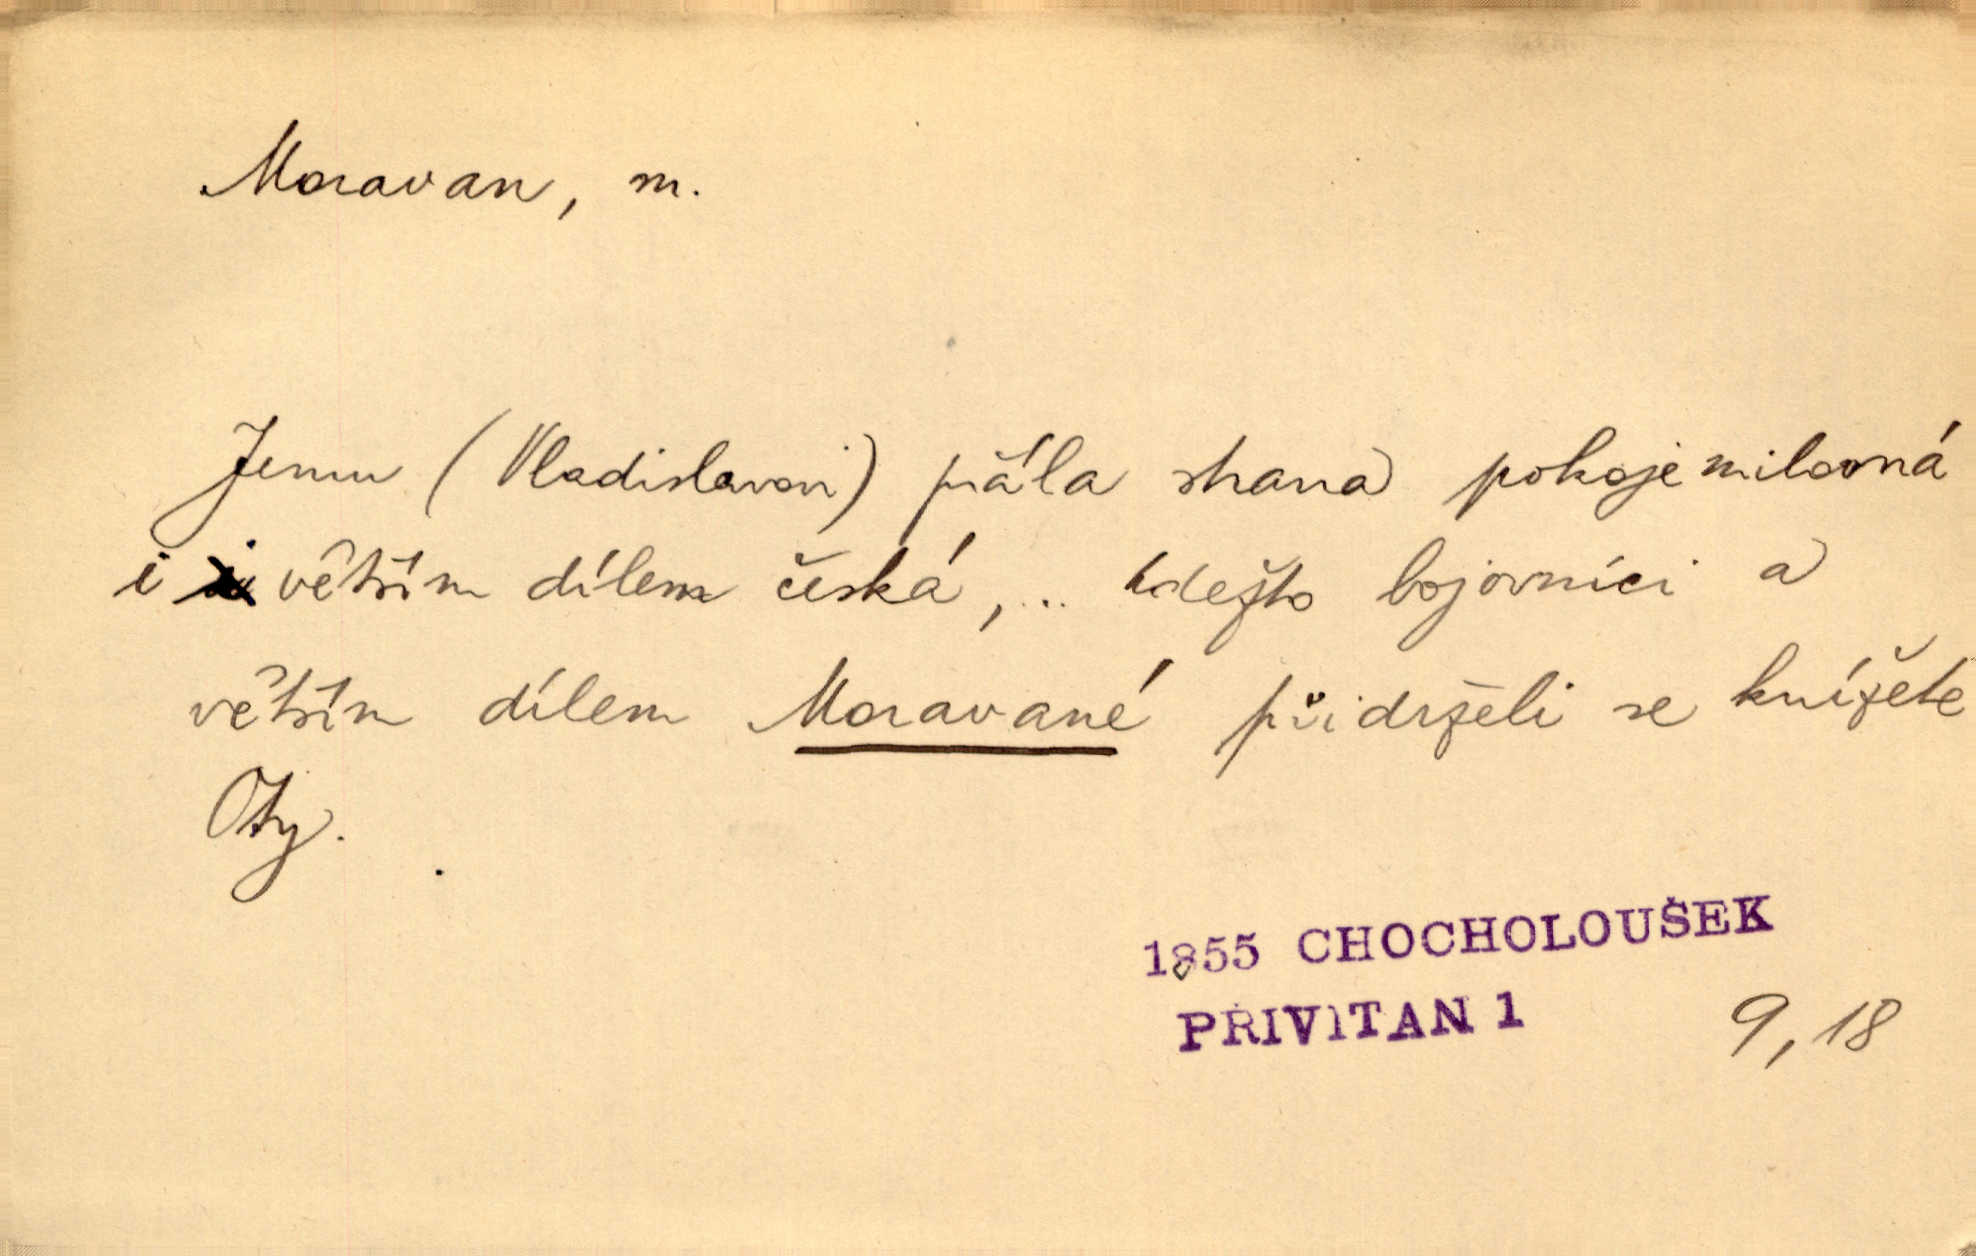 Moravan, m.
Jemu (Vladislavovi) přála strana pokojemilovná
i větším dílem česká, ... kdežto bojovníci a
větším dílem Moravané přidrželi se knížete
Oty.
1855 CHOCHOLOUŠEK
PŘIVITAN 1 9, 18